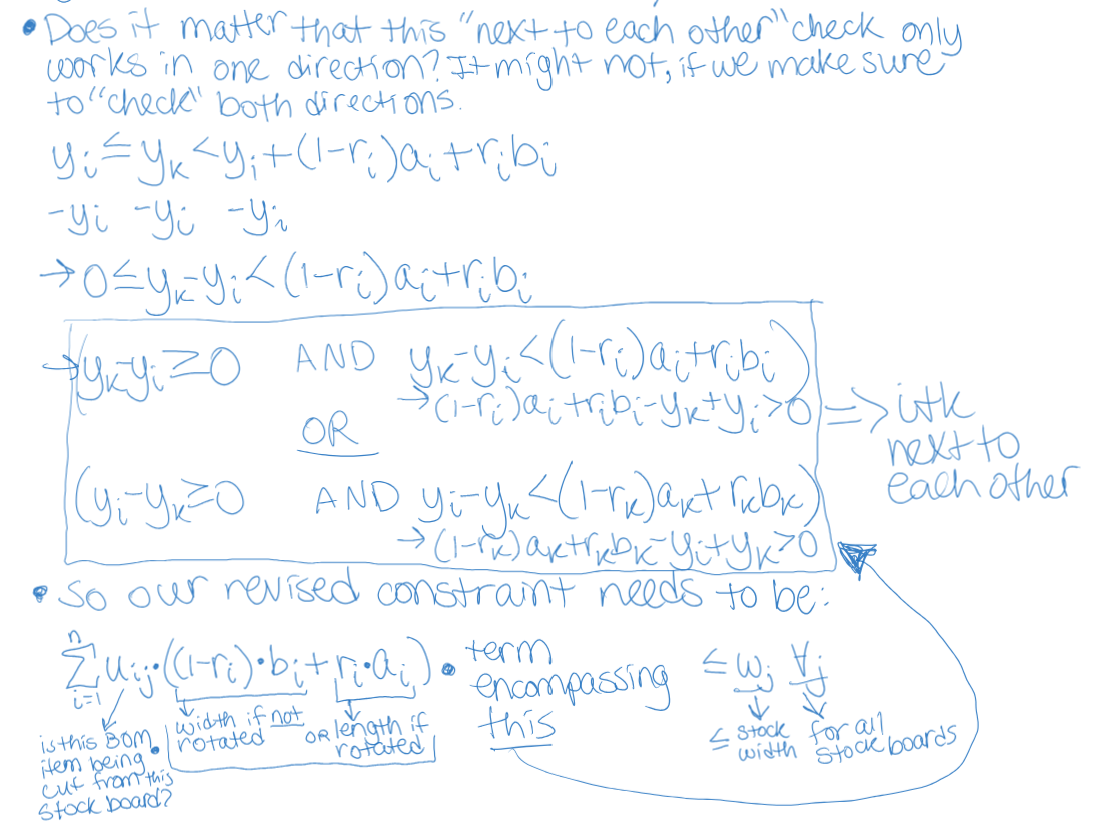 • Does it matter that this "next to each other" check only
works in one direction? It might not, if we make sure
to "check" both directions.
yᵢ ≤ yₖ < yᵢ + (1-rᵢ)aᵢ + rᵢbᵢ
-yᵢ -yᵢ -yᵢ
→ 0 ≤ yₖ - yᵢ < (1-rᵢ)aᵢ + rᵢbᵢ
→ (yₖ - yᵢ ≥ 0 AND yₖ - yᵢ < (1-rᵢ)aᵢ + rᵢbᵢ)
→ (1-rᵢ)aᵢ + rᵢbᵢ - yₖ + yᵢ > 0
OR
(yᵢ - yₖ ≥ 0 AND yᵢ - yₖ < (1-rₖ)aₖ + rₖbₖ)
→ (1-rₖ)aₖ + rₖbₖ - yᵢ + yₖ > 0
=> i+k
next to
each other
• so our revised constraint needs to be:
n
∑ uᵢⱼ • ((1-rᵢ)•bᵢ + rᵢ•aᵢ) • term encompassing this ≤ wⱼ ∀ⱼ
i=1
is this BOM
item being
cut from this
stock board?
•
width if not
rotated
OR
length if
rotated
≤ stock
width
for all
stock boards